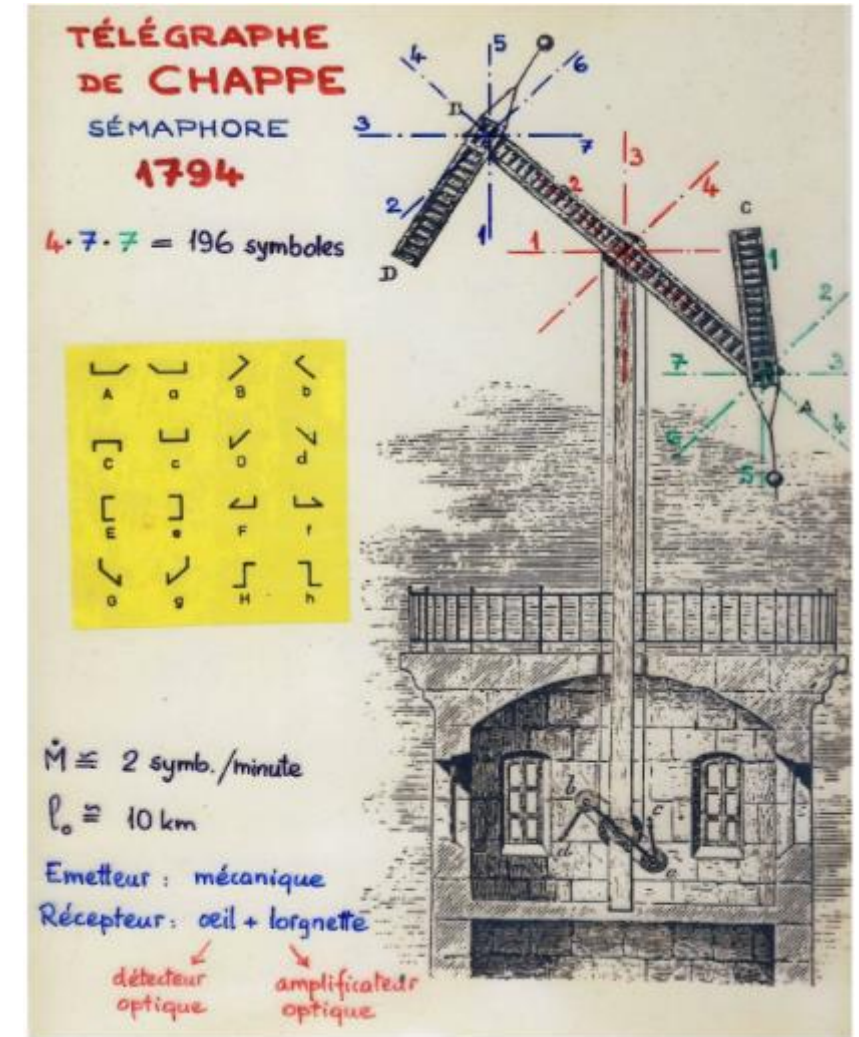 TÉLÉGRAPHE
DE CHAPPE
SÉMAPHORE
1794
4·7·7 = 196 symboles
A a B b
C c D d
E e F f
G g H h
Ṁ ≅ 2 symb./minute
ℓ₀ ≅ 10 km
Emetteur : mécanique
Récepteur : œil + lorgnette
détecteur
optique
amplificateur
optique
4
5
6
3
7
2
1
D
3
2
4
1
C
1
2
7
3
A
4
6
5
b
c
d
e